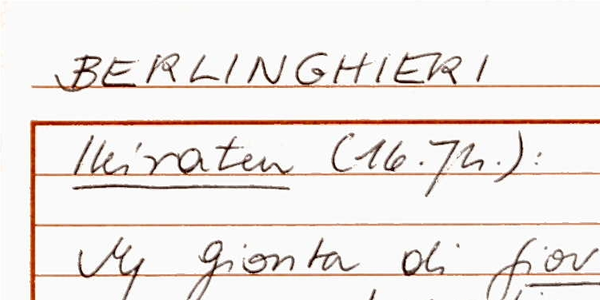 BERLINGHIERI
Heiraten (16.Jh.):
gionta di